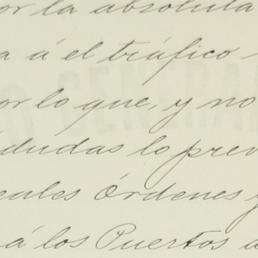 or la absoluta
a á el tráfico
or lo que, y no
dudas lo prev
eales Órdenes y
á los Puertos a